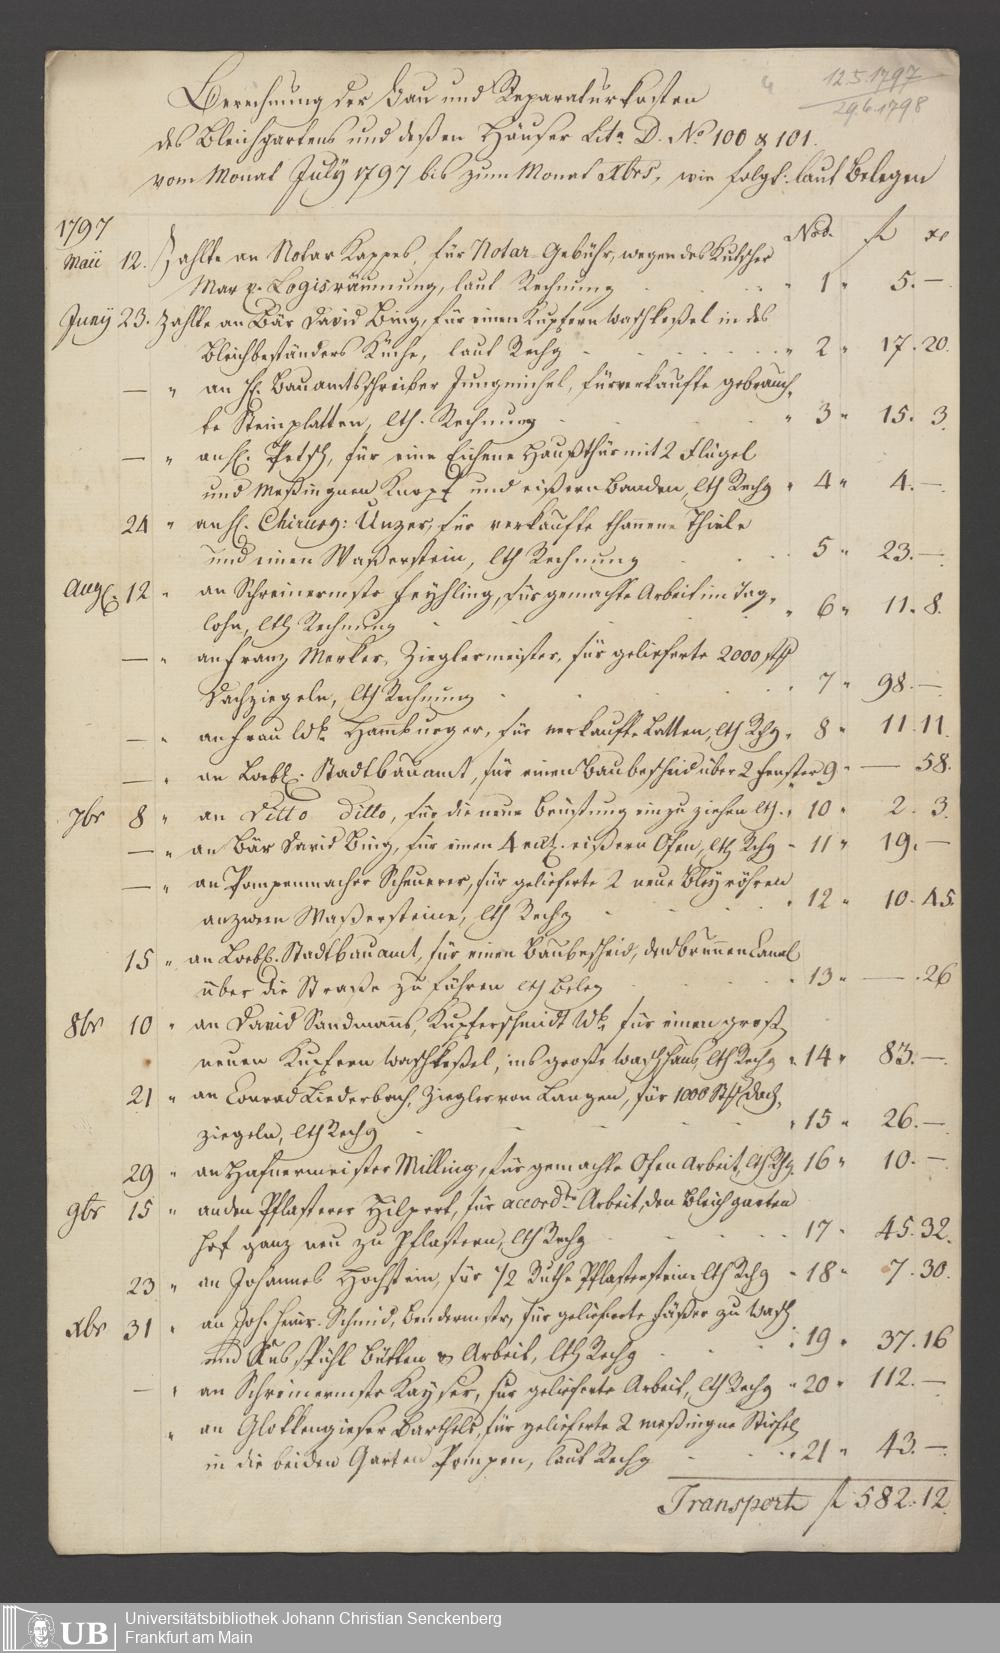 12.5.1797
29.6.1798
Berechnung der Bau und Reparaturkosten
des Bleichgartens und deßen Häußer Litr. D. No. 100 & 101.
vom Monat July 1797 bis zum Monat Xbris, wie folgt: laut Belegen
1797 Nro. f xr
Maii 12. Zahlte an Notar Kappes, für Notar Gebühr, wegen des Kutscher
Mar Logisräumung, laut Rechnung " 1 " 5. —
Juny 23. Zahlte an Bär David Bing, für einen Kupfern Waschkeßel in des
Bleichbeständers Küche, laut Rechg " 2 " 17. 20.
— " an H. Bauamtsschreiber Jungmichel, für verkaufte gebrauch-
te Steinplatten, lth. Rechnung " 3 " 15. 3.
— " an H. Petsch, für eine Eichene Haußthür mit 2 Flügel
und Meßingnen Knopf und eißern Banden, lth Rechg " 4 " 4. —
24 " an H. Chirurg: Unzer, für verkaufte thannene Thiele
und einen Waßerstein, lth Rechnung 5 " 23. —
Aug. 12 " an Schreinermstr Feyhling, für gemachte Arbeit im Tag-
lohn, lth Rechnung " 6 " 11. 8.
— " an Franz Merker, Zieglermeister, für gelieferte 2000 stk
Dachziegeln, lth Rechnung " 7 " 98. —
— " an Frau Wb. Hamburger, für verkaufte Latten, lth Rchg " 8 " 11. 11.
— " an Loebl. Stadtbauamt, für einen Baubescheid über 2 Fenster 9 " — 58.
7br 8 " an Ditto Ditto, für die neue Brüstung einzuziehen lth. " 10 " 2. 3.
— " an Bär David Bing, für einen 4 eckt. eißern Ofen, lth Rchg " 11 " 19. —
— " an Pompenmacher Scheuerer, für gelieferte 2 neue Bley röhren
an zween Waßersteine, lth Rechg " 12 " 10. 45.
15 " an Loebl. Stadtbauamt, für einen Baubescheid, den Brunnen Canal
über die Straße zu führen lth Beleg " 13 " — . 26
8br 10 " an David Sandmanns, Kupferschmidt Wb. für einen groß
neuen Kupfern Waschkeßel, ins große Waschhaus, lth Rechg " 14 " 83. —
21 " an Conrad Liederbach, Ziegler von Langen, für 1000 Stk Dach-
ziegeln, lth Rechg " 15 " 26. —
29 " an Hafnermeister Milling, für gemachte Ofen Arbeit, lth Rchg. 16 " 10. —
9br 15 " an den Pflasterer Hilpert, für accordte Arbeit, den Bleichgarten
Hof ganz neu zu Pflastern, lth Rechg 17 " 45. 32.
23 " an Johannes Hochstein, für 1/2 Ruthe Pflastersteine lth Rchg " 18 " 7. 30.
Xbr 31 " an Joh. Heinr. Schmid, Bendermstr, für gelieferte Fäßer zu Wasch
und Spühl Bütten & Arbeit, lth Rechg " 19 " 37. 16
— " an Schreinermstr Kayser, für gelieferte Arbeit, lth Rechg " 20 " 112. —
" an Glokkengieser Barthels, für gelieferte 2 meßingne Stiefel
in die beiden Garten Pompen, laut Rechg " 21 " 43. —
Transport f 582. 12.
UB
Universitätsbibliothek Johann Christian Senckenberg
Frankfurt am Main